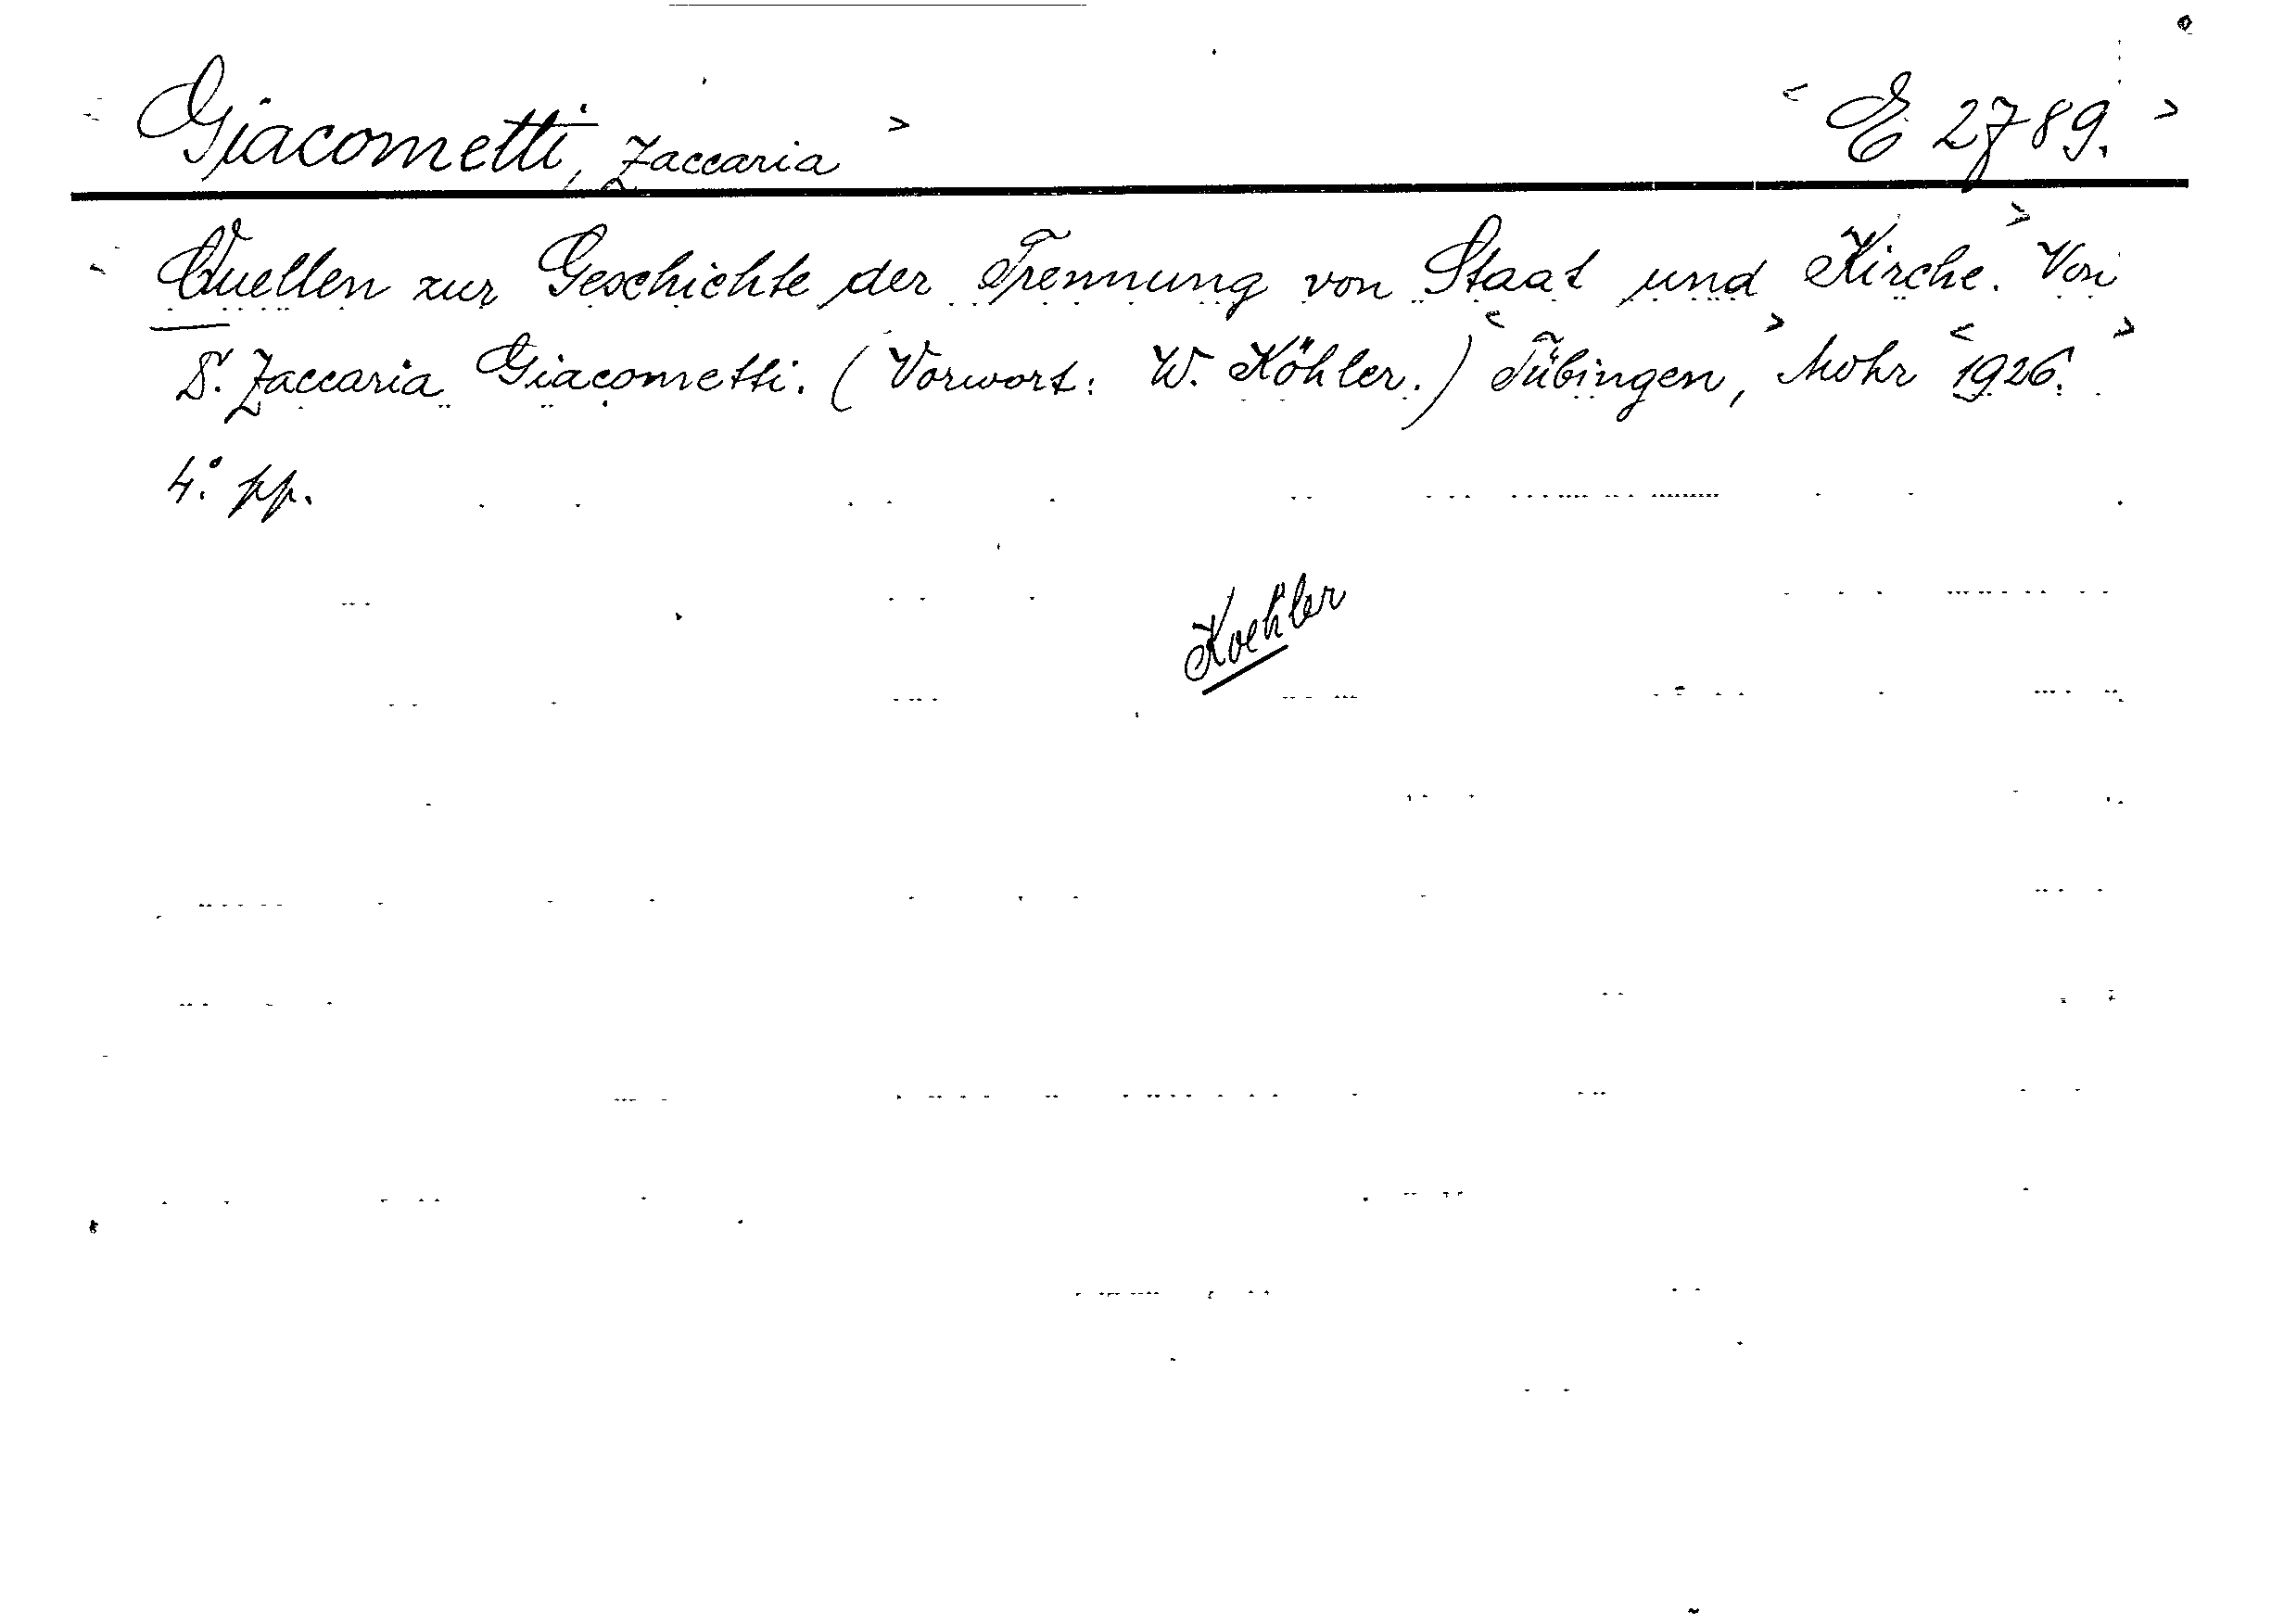 Giacometti, Zaccaria
E 2789.
Quellen zur Geschichte der Trennung von Staat und Kirche. Von
D. Zaccaria Giacometti. (Vorwort: W. Köhler.) Tübingen, Mohr 1926.
4.° pp.
Koehler